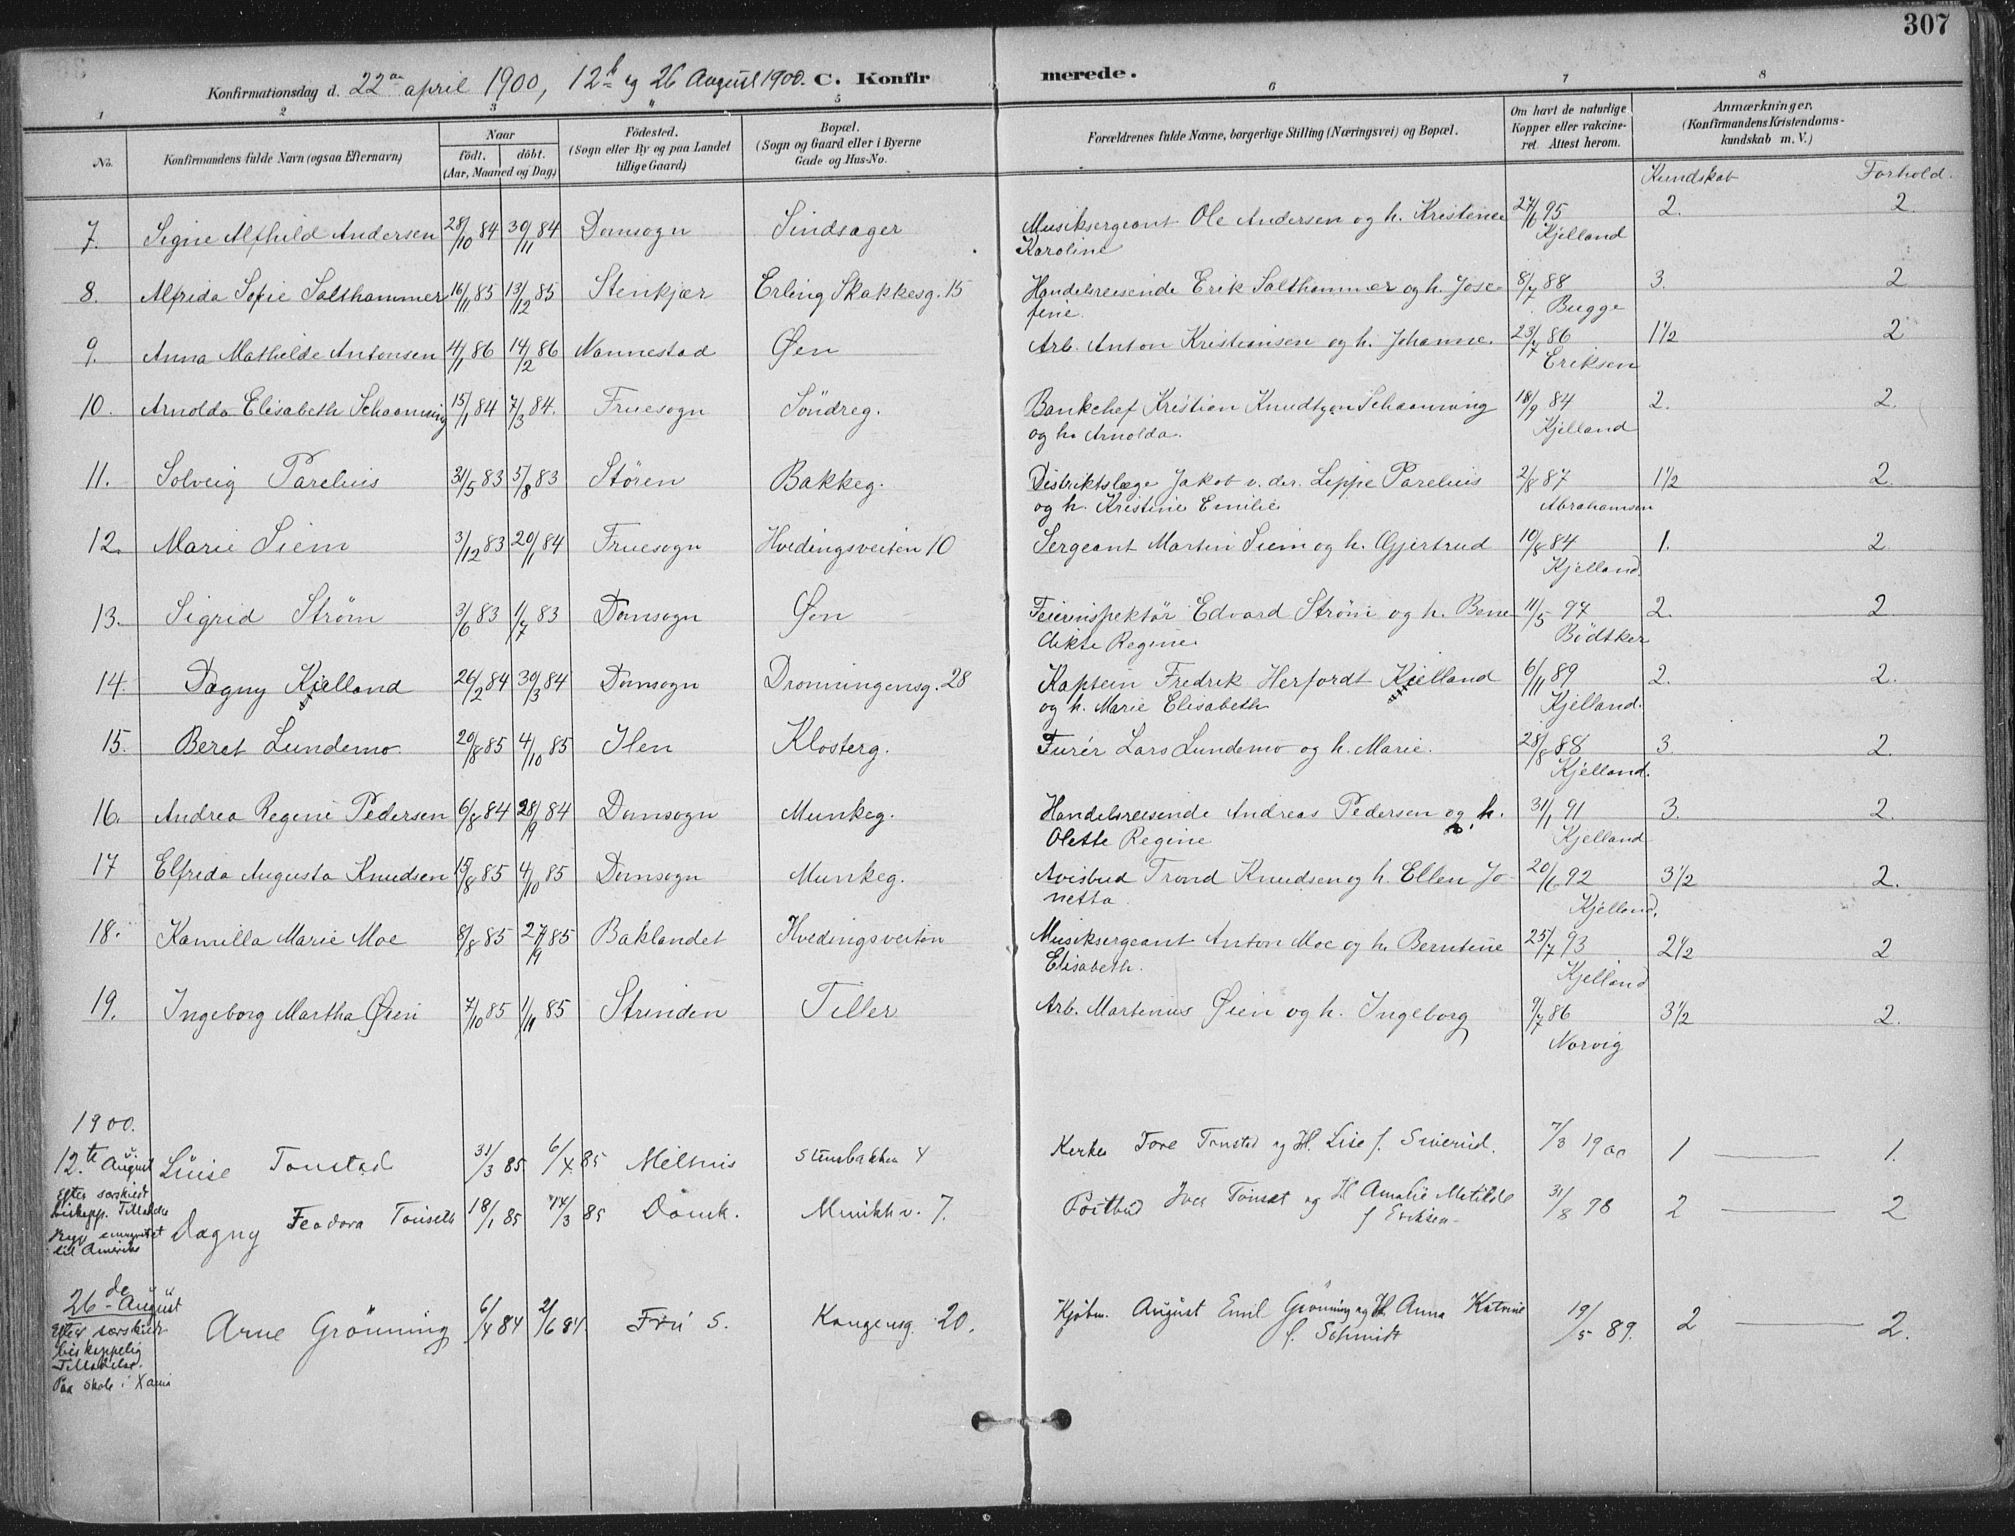 307
Konfirmationsdag d. 22de april 1900, 12te og 26 August 1900. C. Konfirmerede.
1 2 3 4 5 6 7 8
No. Konfirmandens fulde Navn (ogsaa Efternavn) Naar født. døbt. (Aar, Maaned og Dag) Fødested. (Sogn eller By og paa Landet tillige Gaard) Bopæl. (Sogn og Gaard eller i Byerne Gade og Hus-No. Forældrenes fulde Navne, borgerlige Stilling (Næringsvei) og Bopæl. Om havt de naturlige Kopper eller vakcineret. Attest herom. Anmærkninger. (Konfirmandens Kristendomskundskab m. V.)
Kundskab Forhold.
7. Signe Alfhild Andersen 28/10 84 30/11 84 Domsogn Sindsager Musiksergeant Ole Andersen og h. Kristense 27/6 95 2. 2.
Karoline Kjelland
8. Alfrida Sofie Salthammer 16/11 85 13/12 85 Stenkjær Erling Skakkesg. 15 Handelsreisende Erik Salthammer og h. Jose- 8/7 88 3. 2
fine. Bugge
9. Anna Mathilde Antonsen 4/1 86 14/2 86 Nannestad Øen Arb. Anton Kristiansen og h. Johanne. 23/7 86 1 1/2 2
Eriksen
10. Arnolda Elisabeth Schaanning 15/1 84 7/3 84. Fruesogn Söndreg. Bankchef Kristian Knudtzon Schaanning 18/9 84 2. 2.
og h. Arnolda. Kjelland
11. Solveig Parelius 31/5 83 5/8 83 Støren Bakkeg. Distriktslæge Jakob v. der. Lippe Parelius 2/8 87 1 1/2 2.
og h. Kristine Emilie Abrahamsen
12. Marie Siem 3/12 83 20/1 84 Fruesogn Hvedingsveiten 10 Sergeant Martin Siem og h. Gjertrud 10/8 84 1. 2
Kjelland.
13. Sigrid Strøm 3/6 83 1/7 83 Domsogn Øen Feierinspektør Edvard Strøm og h. Bene 11/5 97 2. 2.
dikte Regine Bödtker
14. Dagny Kielland 26/2 84 30/3 84 Domsogn Dronningensg. 28 Kaptein Fredrik Herfordt Kielland 6/11 89 2. 2.
og h. Marie Elisabeth Kjelland.
15. Beret Lundemo 20/8 85 4/10 85 Ilen Klosterg. Furér Lars Lundemo og h. Marie. 28/8 88 3. 2.
Kjelland.
16. Andrea Regine Pedersen 6/8 84 28/9 84 Domsogn Munkeg. Handelsreisende Andreas Pedersen og h. 31/1 91 3. 2.
Olette Regine Kjelland
17 Elfrida Augusta Knudsen 15/8 85 4/10 85 Domsogn Munkeg. Avisbud Trond Knudsen og h. Ellen Jo- 20/6 92 3 1/2 2.
netta. Kjelland.
18. Kamilla Marie Moe 8/8 85 27/9 85 Baklandet Hvedingsveiten Musiksergeant Anton Moe og h. Berntine 25/7 93 2 1/2 2
Elisabeth. Kjelland
19. Ingeborg Martha Øien 7/10 85 1/11 85 Strinden Tiller Arb. Martinius Øien og h. Ingeborg 9/7 86 3 1/2 2.
Norvig
1900.
12.te August Luise Tonstad 31/3 85 6/4. 85 Melhus Stensbakken 4 Tore Tonstad og H. Lise f. Siverud. 7/3 1900 1 1.
Efter særskildt
biskopp. Tilladelse Dagny Feodora Tonseth 18/1 85 14/3 85 Domk. Munkh v. 7. Postbud Iver Tonset og H Amalie Matilde 31/8 98 2 2
f Eriksen
til Amerika
26de August Arne Grönning 6/4 84 2/6 84. Fru S. Kongensg. 20. Kjøbm. August Emil Grönning og H Anna Katrine 19/5 89. 2 2.
Efter særskildt f. Schmidt
biskoppelig
Tilladelse.
Paa Skole i Xania